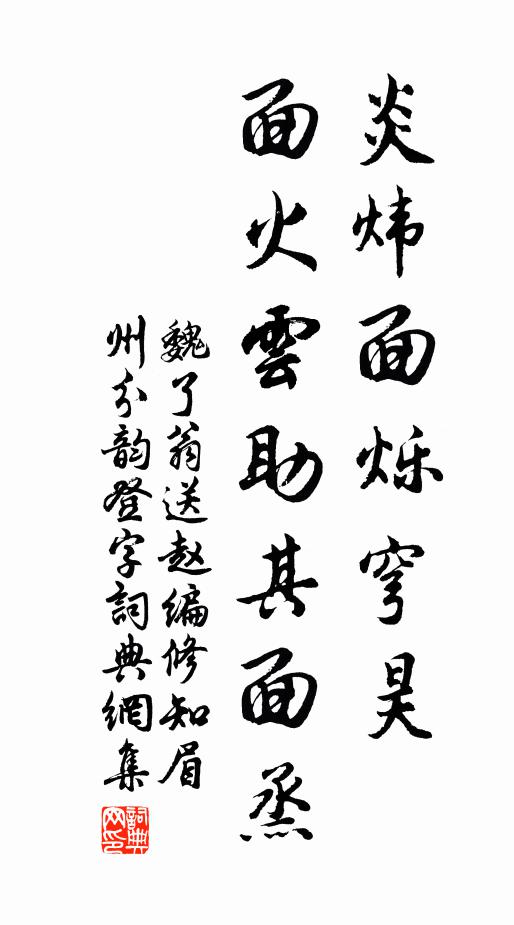 炎炜面烁穹昊
面火雲助其面烝
魏了翁送赵编修知眉
州分韵登字詞典網集
詞典网印